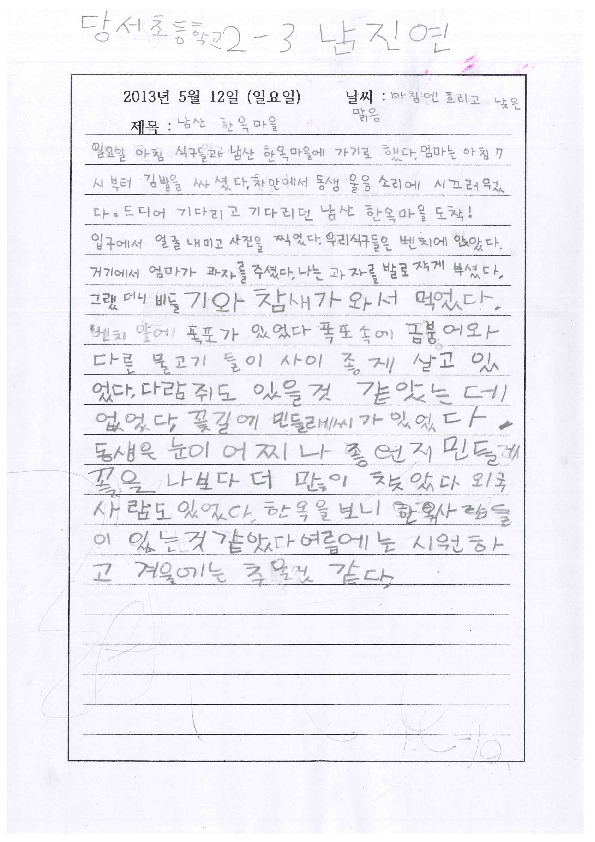 당서초등학교 2-3 남진연
2013년 5월 12일 (일요일) 날씨 : 아침엔 흐리고 낮은
맑음
제목 : 남산 한옥마을
일요일 아침 식구들과 남산 한옥마을에 가기로 했다. 엄마는 아침 7
시부터 김밥을 싸셨다. 차안에서 동생 울음 소리에 시끄러웠
다. 드디어 기다리고 기다리던 남산 한옥마을 도착!
입구에서 얼굴 내미고 사진을 찍었다. 우리식구들은 벤치에 앉았다.
거기에서 엄마가 과자를 주셨다. 나는 과자를 발로 작게 부셨다.
그랬더니 비둘기와 참새가 와서 먹었다.
벤치 앞에 폭포가 있었다 폭포속에 금붕어와
다른 물고기 들이 사이 좋게 살고 있
었다. 다람쥐도 있을것 같앗는데
없었다. 꽃길에 민들레씨가 있었다.
동생은 눈이 어찌나 좋은지 민들레
꽃을 나보다 더 많이 찾았다 외국
사람도 있었다. 한옥을 보니 한옥사람들
이 있는것 같았다 여름에는 시원하
고 겨울에는 추울것 같다.